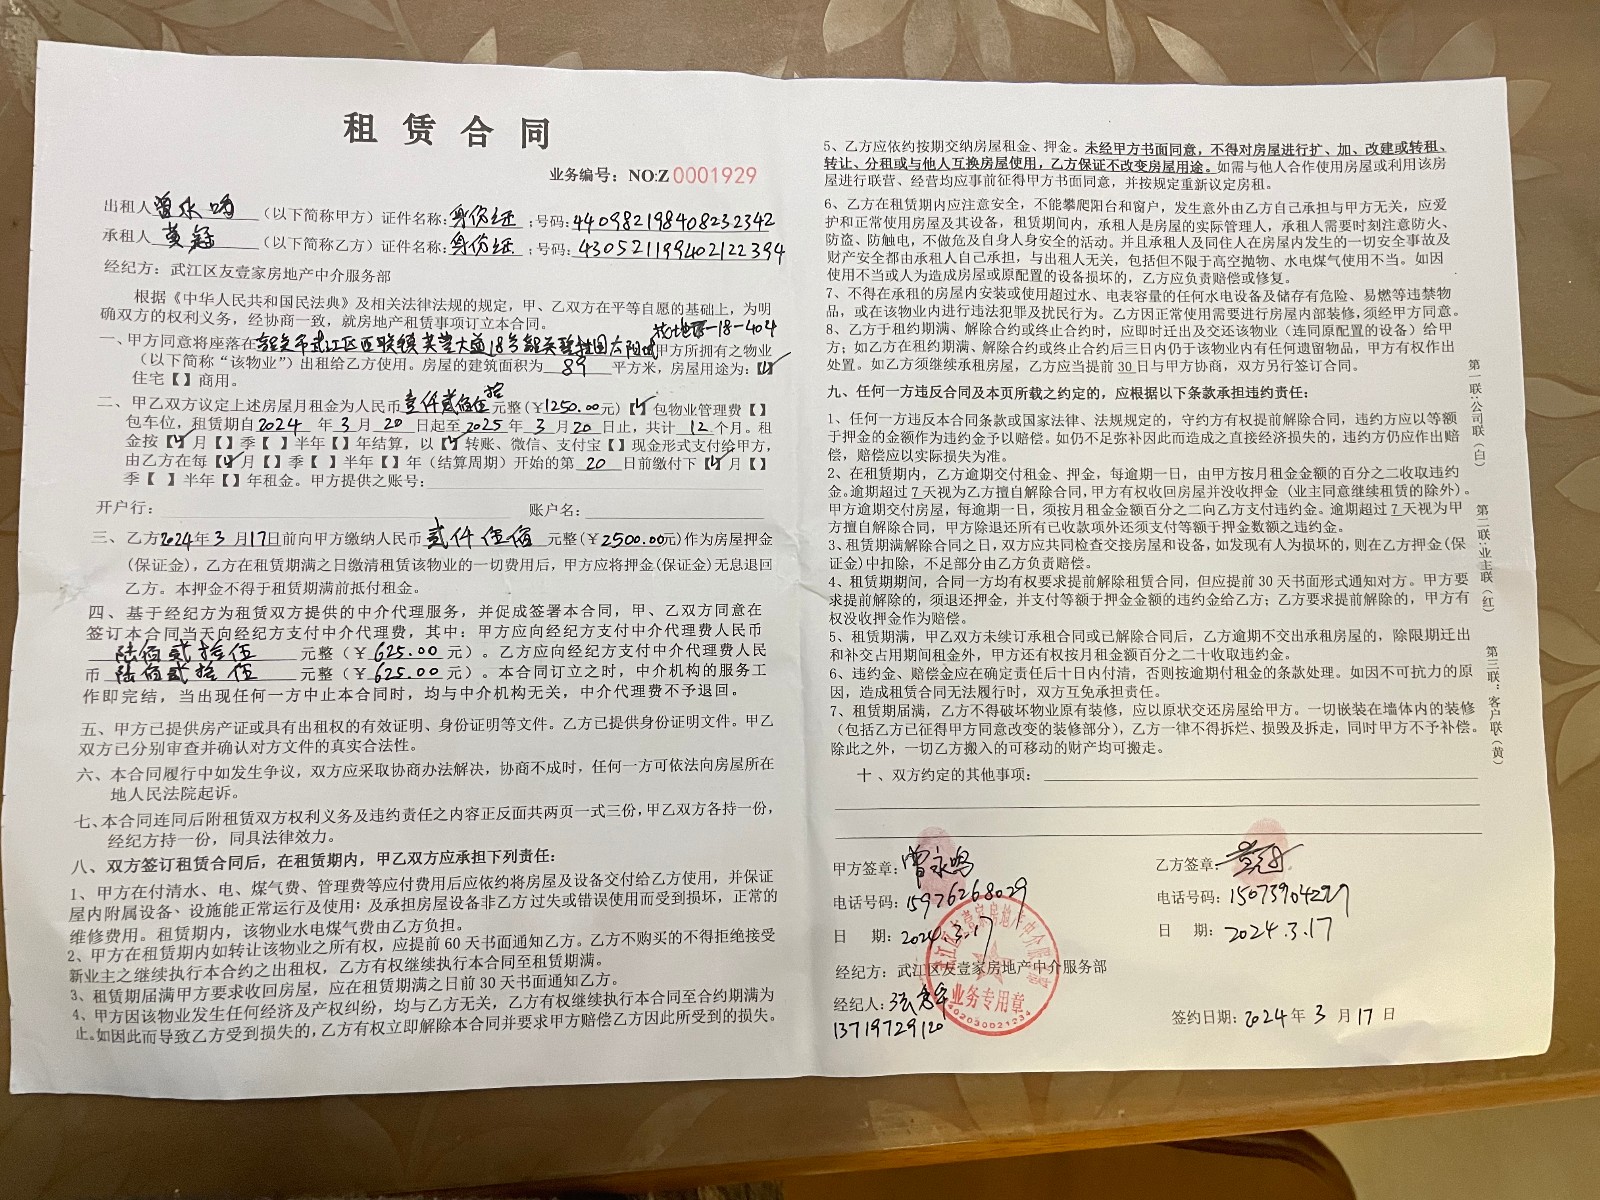 租赁合同
业务编号：NO:Z 0001929
出租人 曾永鸣 （以下简称甲方）证件名称：身份证；号码：440982198408232342
承租人 黄冠 （以下简称乙方）证件名称：身份证；号码：430521199402122394
经纪方：武江区友壹家房地产中介服务部
根据《中华人民共和国民法典》及相关法律法规的规定，甲、乙双方在平等自愿的基础上，为明
确双方的权利义务，经协商一致，就房地产租赁事项订立本合同。
-18-404
一、甲方同意将座落在韶关市武江区西联镇芙蓉大道18号韶关碧桂园太阳城甲方所拥有之物业
（以下简称“该物业”）出租给乙方使用。房屋的建筑面积为 89 平方米，房屋用途为：【✓】
住宅【 】商用。
二、甲乙双方议定上述房屋月租金为人民币壹仟贰佰伍拾元整(￥1250.00元)【✓】包物业管理费【 】
包车位，租赁期自2024 年 3 月 20 日起至2025 年 3 月 20 日止，共计 12 个月。租
金按【✓】月【 】季【 】半年【 】年结算，以【✓】转账、微信、支付宝【 】现金形式支付给甲方，
由乙方在每【✓】月【 】季【 】半年【 】年（结算周期）开始的第 20 日前缴付下【✓】月【 】
季【 】半年【 】年租金。甲方提供之账号：
开户行： 账户名：
三、乙方2024年3月17日前向甲方缴纳人民币 贰仟伍佰 元整(￥2500.00元)作为房屋押金
(保证金)，乙方在租赁期满之日缴清租赁该物业的一切费用后，甲方应将押金(保证金)无息退回
乙方。本押金不得于租赁期满前抵付租金。
四、基于经纪方为租赁双方提供的中介代理服务，并促成签署本合同，甲、乙双方同意在
签订本合同当天向经纪方支付中介代理费，其中：甲方应向经纪方支付中介代理费人民币
陆佰贰拾伍 元整（￥625.00 元）。乙方应向经纪方支付中介代理费人民
币 陆佰贰拾伍 元整（￥625.00 元）。本合同订立之时，中介机构的服务工
作即完结，当出现任何一方中止本合同时，均与中介机构无关，中介代理费不予退回。
五、甲方已提供房产证或具有出租权的有效证明、身份证明等文件。乙方已提供身份证明文件。甲乙
双方已分别审查并确认对方文件的真实合法性。
六、本合同履行中如发生争议，双方应采取协商办法解决，协商不成时，任何一方可依法向房屋所在
地人民法院起诉。
七、本合同连同后附租赁双方权利义务及违约责任之内容正反面共两页一式三份，甲乙双方各持一份，
经纪方持一份，同具法律效力。
八、双方签订租赁合同后，在租赁期内，甲乙双方应承担下列责任：
1、甲方在付清水、电、煤气费、管理费等应付费用后应依约将房屋及设备交付给乙方使用，并保证
屋内附属设备、设施能正常运行及使用；及承担房屋设备非乙方过失或错误使用而受到损坏，正常的
维修费用。租赁期内，该物业水电煤气费由乙方负担。
2、甲方在租赁期内如转让该物业之所有权，应提前 60 天书面通知乙方。乙方不购买的不得拒绝接受
新业主之继续执行本合约之出租权，乙方有权继续执行本合同至租赁期满。
3、租赁期届满甲方要求收回房屋，应在租赁期满之日前 30 天书面通知乙方。
4、甲方因该物业发生任何经济及产权纠纷，均与乙方无关，乙方有权继续执行本合同至合约期满为
止。如因此而导致乙方受到损失的，乙方有权立即解除本合同并要求甲方赔偿乙方因此所受到的损失。
5、乙方应依约按期交纳房屋租金、押金。未经甲方书面同意，不得对房屋进行扩、加、改建或转租、
转让、分租或与他人互换房屋使用，乙方保证不改变房屋用途。如需与他人合作使用房屋或利用该房
屋进行联营、经营均应事前征得甲方书面同意，并按规定重新议定房租。
6、乙方在租赁期内应注意安全，不能攀爬阳台和窗户，发生意外由乙方自己承担与甲方无关，应爱
护和正常使用房屋及其设备，租赁期间内，承租人是房屋的实际管理人，承租人需要时刻注意防火、
防盗、防触电，不做危及自身人身安全的活动。并且承租人及同住人在房屋内发生的一切安全事故及
财产安全都由承租人自己承担，与出租人无关，包括但不限于高空抛物、水电煤气使用不当。如因
使用不当或人为造成房屋或原配置的设备损坏的，乙方应负责赔偿或修复。
7、不得在承租的房屋内安装或使用超过水、电表容量的任何水电设备及储存有危险、易燃等违禁物
品，或在该物业内进行违法犯罪及扰民行为。乙方因正常使用需要进行房屋内部装修，须经甲方同意。
8、乙方于租约期满、解除合约或终止合约时，应即时迁出及交还该物业（连同原配置的设备）给甲
方；如乙方在租约期满、解除合约或终止合约后三日内仍于该物业内有任何遗留物品，甲方有权作出
处置。如乙方须继续承租房屋，乙方应当提前 30 日与甲方协商，双方另行签订合同。
九、任何一方违反合同及本页所载之约定的，应根据以下条款承担违约责任：
1、任何一方违反本合同条款或国家法律、法规规定的，守约方有权提前解除合同，违约方应以等额
于押金的金额作为违约金予以赔偿。如仍不足弥补因此而造成之直接经济损失的，违约方仍应作出赔
偿，赔偿应以实际损失为准。
2、在租赁期内，乙方逾期交付租金、押金，每逾期一日，由甲方按月租金金额的百分之二收取违约
金。逾期超过 7 天视为乙方擅自解除合同，甲方有权收回房屋并没收押金（业主同意继续租赁的除外）。
甲方逾期交付房屋，每逾期一日，须按月租金金额百分之二向乙方支付违约金。逾期超过 7 天视为甲
方擅自解除合同，甲方除退还所有已收款项外还须支付等额于押金数额之违约金。
3、租赁期满解除合同之日，双方应共同检查交接房屋和设备，如发现有人为损坏的，则在乙方押金(保
证金)中扣除，不足部分由乙方负责赔偿。
4、租赁期期间，合同一方均有权要求提前解除租赁合同，但应提前 30 天书面形式通知对方。甲方要
求提前解除的，须退还押金，并支付等额于押金金额的违约金给乙方；乙方要求提前解除的，甲方有
权没收押金作为赔偿。
5、租赁期满，甲乙双方未续订承租合同或已解除合同后，乙方逾期不交出承租房屋的，除限期迁出
和补交占用期间租金外，甲方还有权按月租金额百分之二十收取违约金。
6、违约金、赔偿金应在确定责任后十日内付清，否则按逾期付租金的条款处理。如因不可抗力的原
因，造成租赁合同无法履行时，双方互免承担责任。
7、租赁期届满，乙方不得破坏物业原有装修，应以原状交还房屋给甲方。一切嵌装在墙体内的装修
（包括乙方已征得甲方同意改变的装修部分），乙方一律不得拆烂、损毁及拆走，同时甲方不予补偿。
除此之外，一切乙方搬入的可移动的财产均可搬走。
十、双方约定的其他事项：
甲方签章：曾永鸣
电话号码：15976268029
日 期：2024.3.17
乙方签章：黄冠
电话号码：15073904229
日 期：2024.3.17
经纪方：武江区友壹家房地产中介服务部
经纪人：
13719729120
签约日期：2024 年 3 月 17 日
武江区友壹家房地产中介服务部
业务专用章
第一联：公司联（白）
第二联：业主联（红）
第三联：客户联（黄）